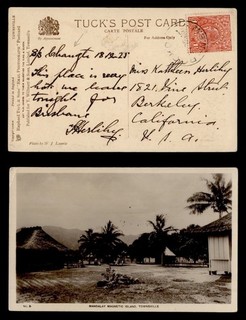 TUCK'S POST CARD
CARTE POSTALE
For Address Only
S/S Changte 18.12.28
This place is very
hot we leave
tonight for
Brisbane
Miss Kathleen Herlihy
1821 Vine Street
Berkeley
California
U. S. A.
Photo by W. J. Laurie
MANDALAY MAGNETIC ISLAND, TOWNSVILLE